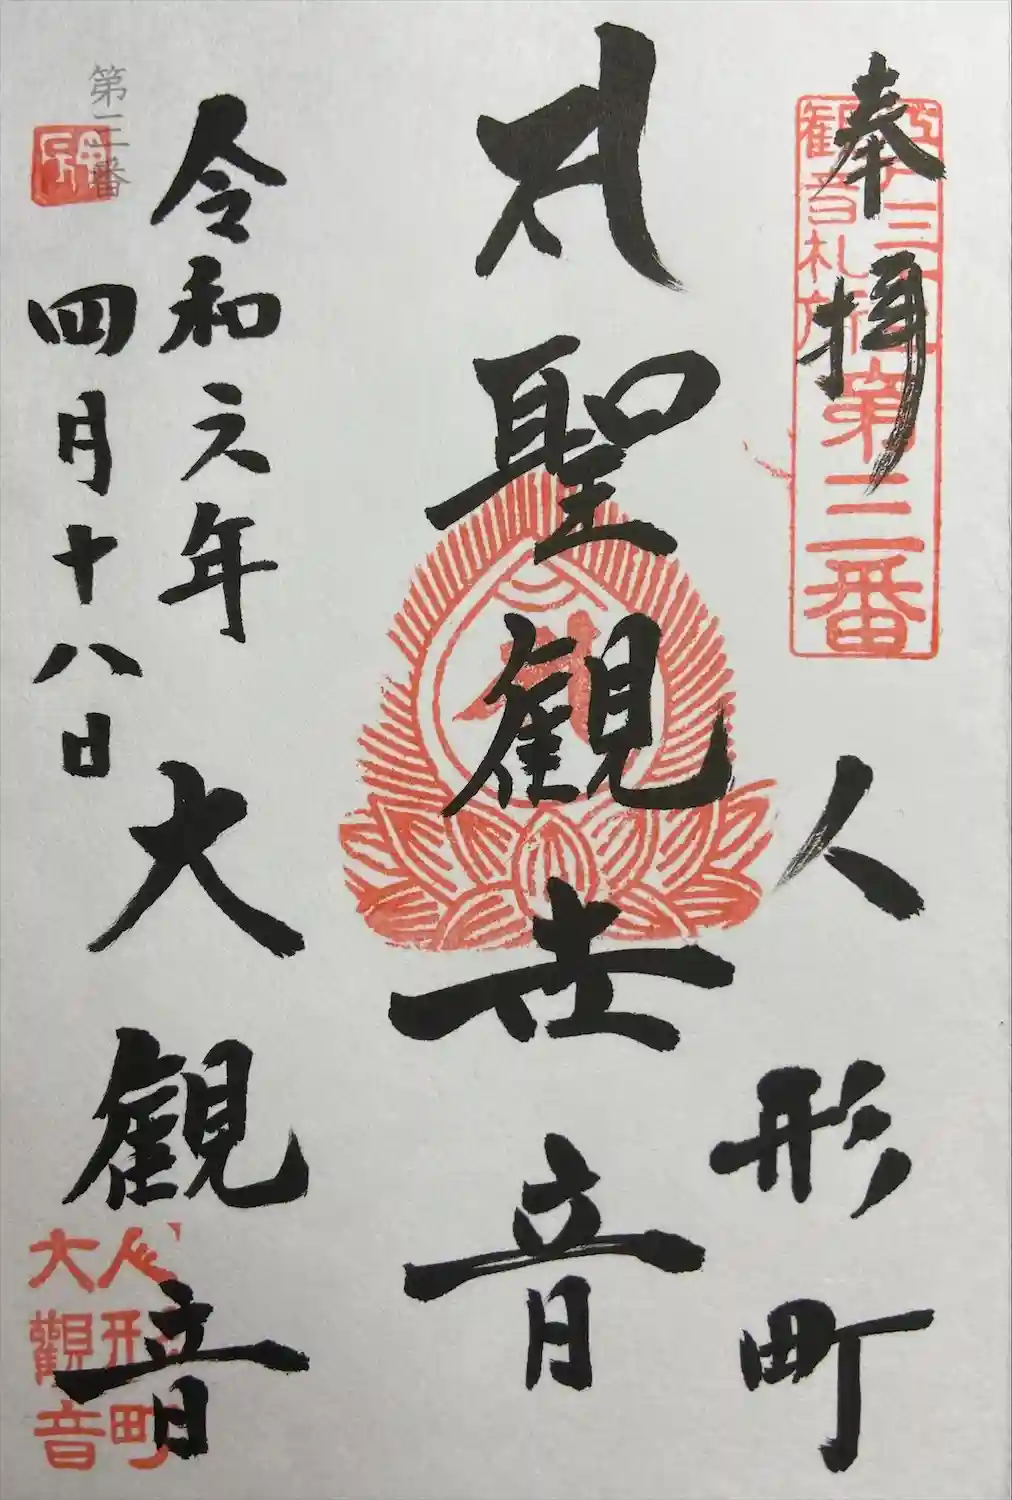 奉拝
人形町
江戸三十三
観音札所
第三番
サ 聖観世音
令和元年
四月十八日
大観音
第三番
人形町
大觀音